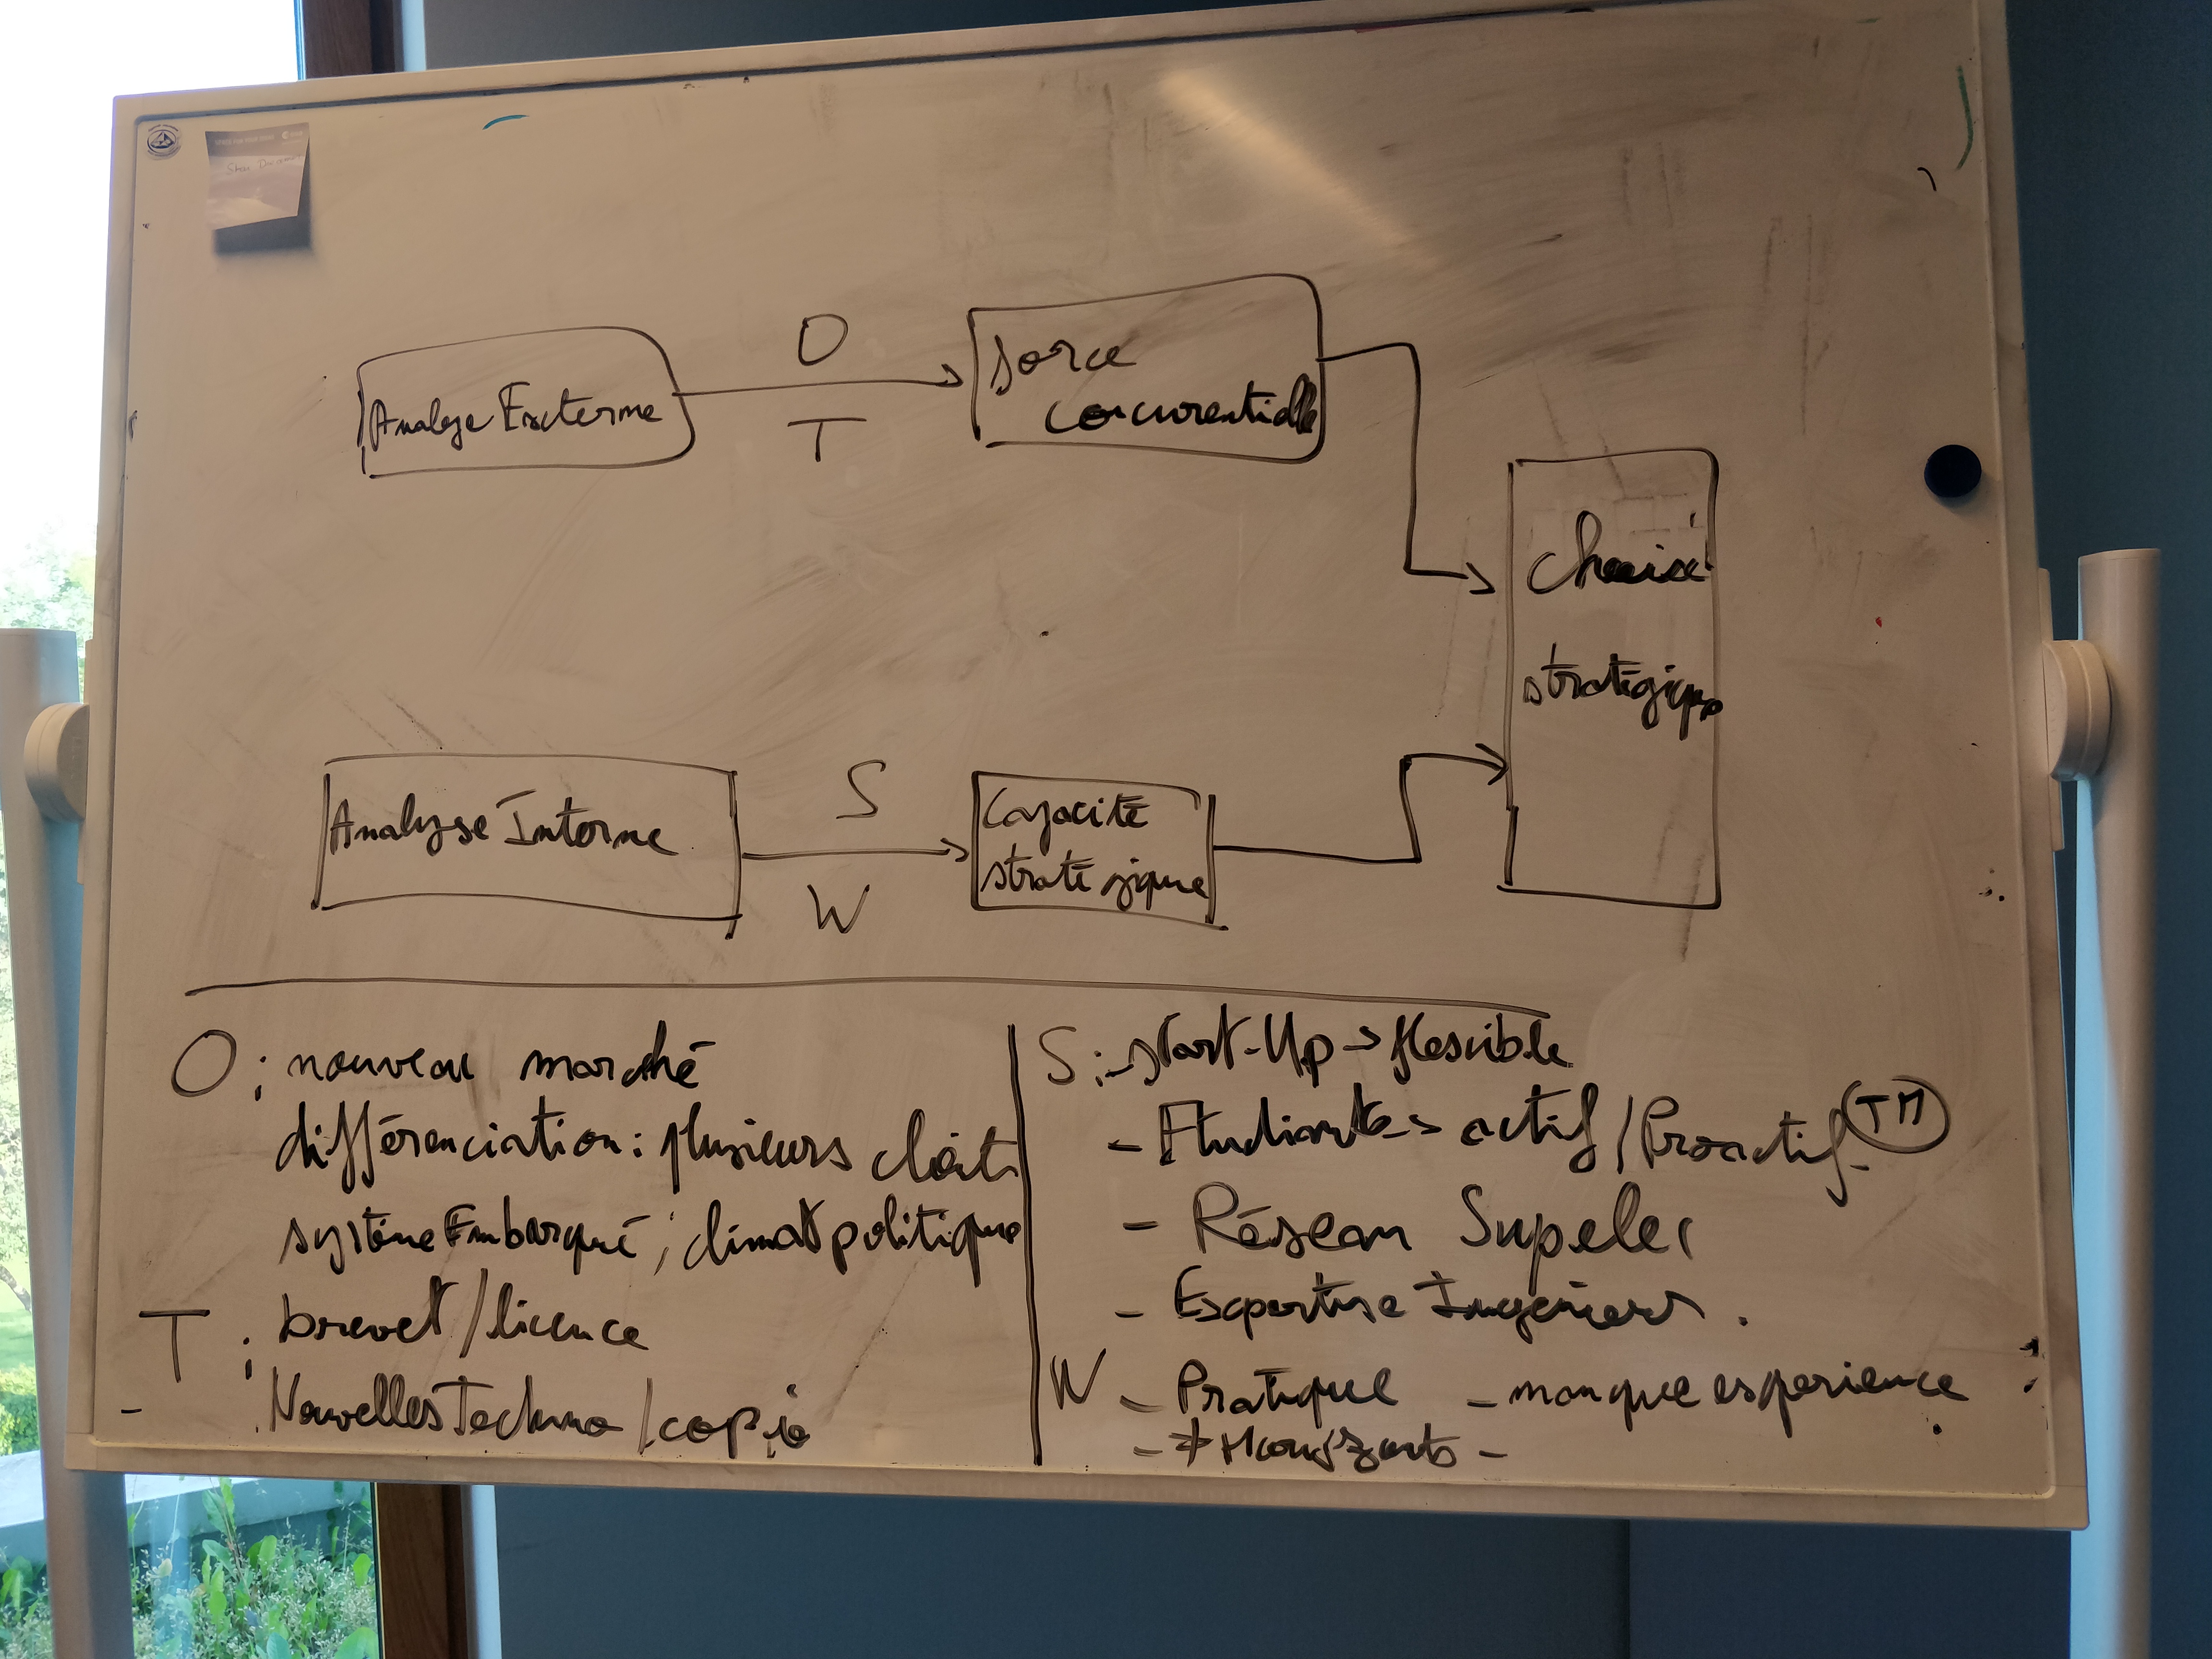 Analyse Externe
O
T
force
concurentielle
choix
stratégique
Analyse Interne
S
W
Capacité
stratégique
O : nouveau marché
différenciation : plusieurs client
système Embarqué ; climat politique
T : brevet / licence
- Nouvelles Techno / copie
S : - start-Up -> flexible
- Etudiants -> actif / Proactif TM
- Réseau Supelec
- Expertise Ingénieurs .
W - Pratique - manque experience
- ≠